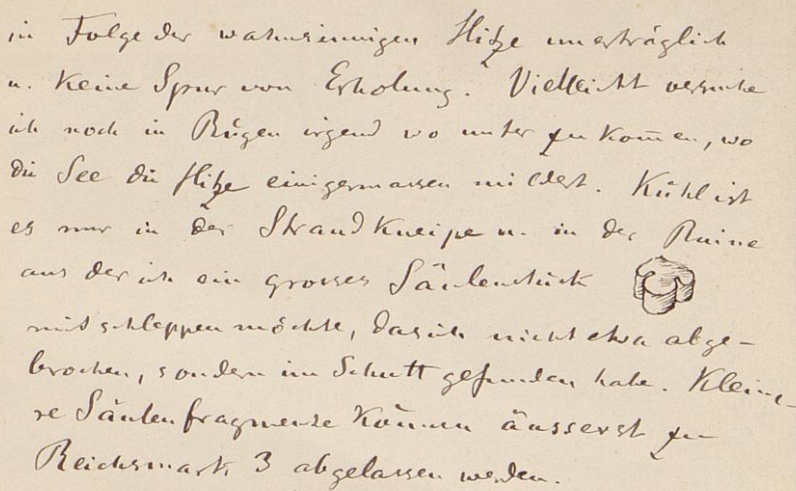 in Folge der wahnsinnigen Hitze unerträglich
u. keine Spur von Erholung. Vielleicht versuche
ich noch in Rügen irgend wo unter zu kom̅en, wo
die See die Hitze einigermassen mildert. Kühl ist
es nur in der Strandkneipe u. in der Ruine
aus der ich ein grosses Säulenstück
mitschleppen möchte, das ich nicht etwa abge-
brochen, sondern im Schutt gefunden habe. Kleine-
re Säulenfragmente können äusserst zu
Reichsmark 3 abgelassen werden.